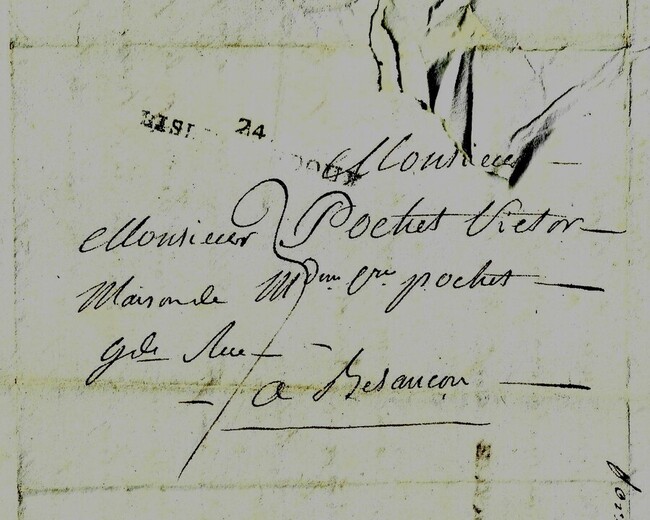 24
Monsieur
Monsieur Pochet Victor
Maison de Mdme Vve pochet
gde Rue
a Besançon